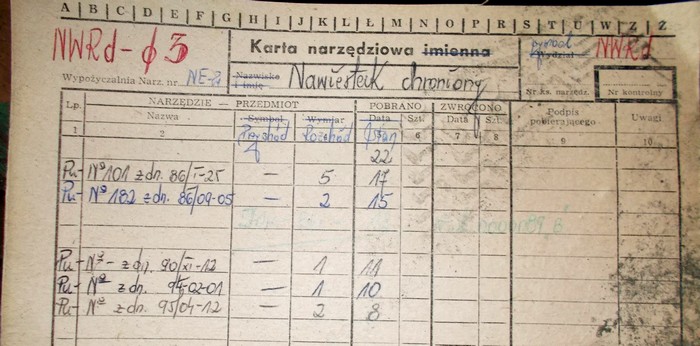 A B C D E F G H I J K L Ł M N O P R S T U W Z Ż
NWRd-φ3
Karta narzędziowa imienna
Wydział
NWRd
Wypożyczalnia Narz. nr NE-
Nazwisko i imię
Nawiertak chroniony
Nr ks. narzędz.
Nr kontrolny
Lp. NARZĘDZIE — PRZEDMIOT POBRANO ZWRÓCONO Podpis pobierającego Uwagi
Nazwa Symbol Wymiar Data Szt. Data Szt.
Przychód Rozchód Stan
1 2 6 7 8 9 10
22
Pu- Nº 101 z dn. 86/I-25 — 5 17
Pu- Nº 182 z dn. 86/09-05 — 2 15
Pu- Nº - z dn. 90/XI-12 — 1 11
Pu- Nº z dn. 94-02-01 — 1 10
Pu- Nº z dn. 95/04-12 — 2 8